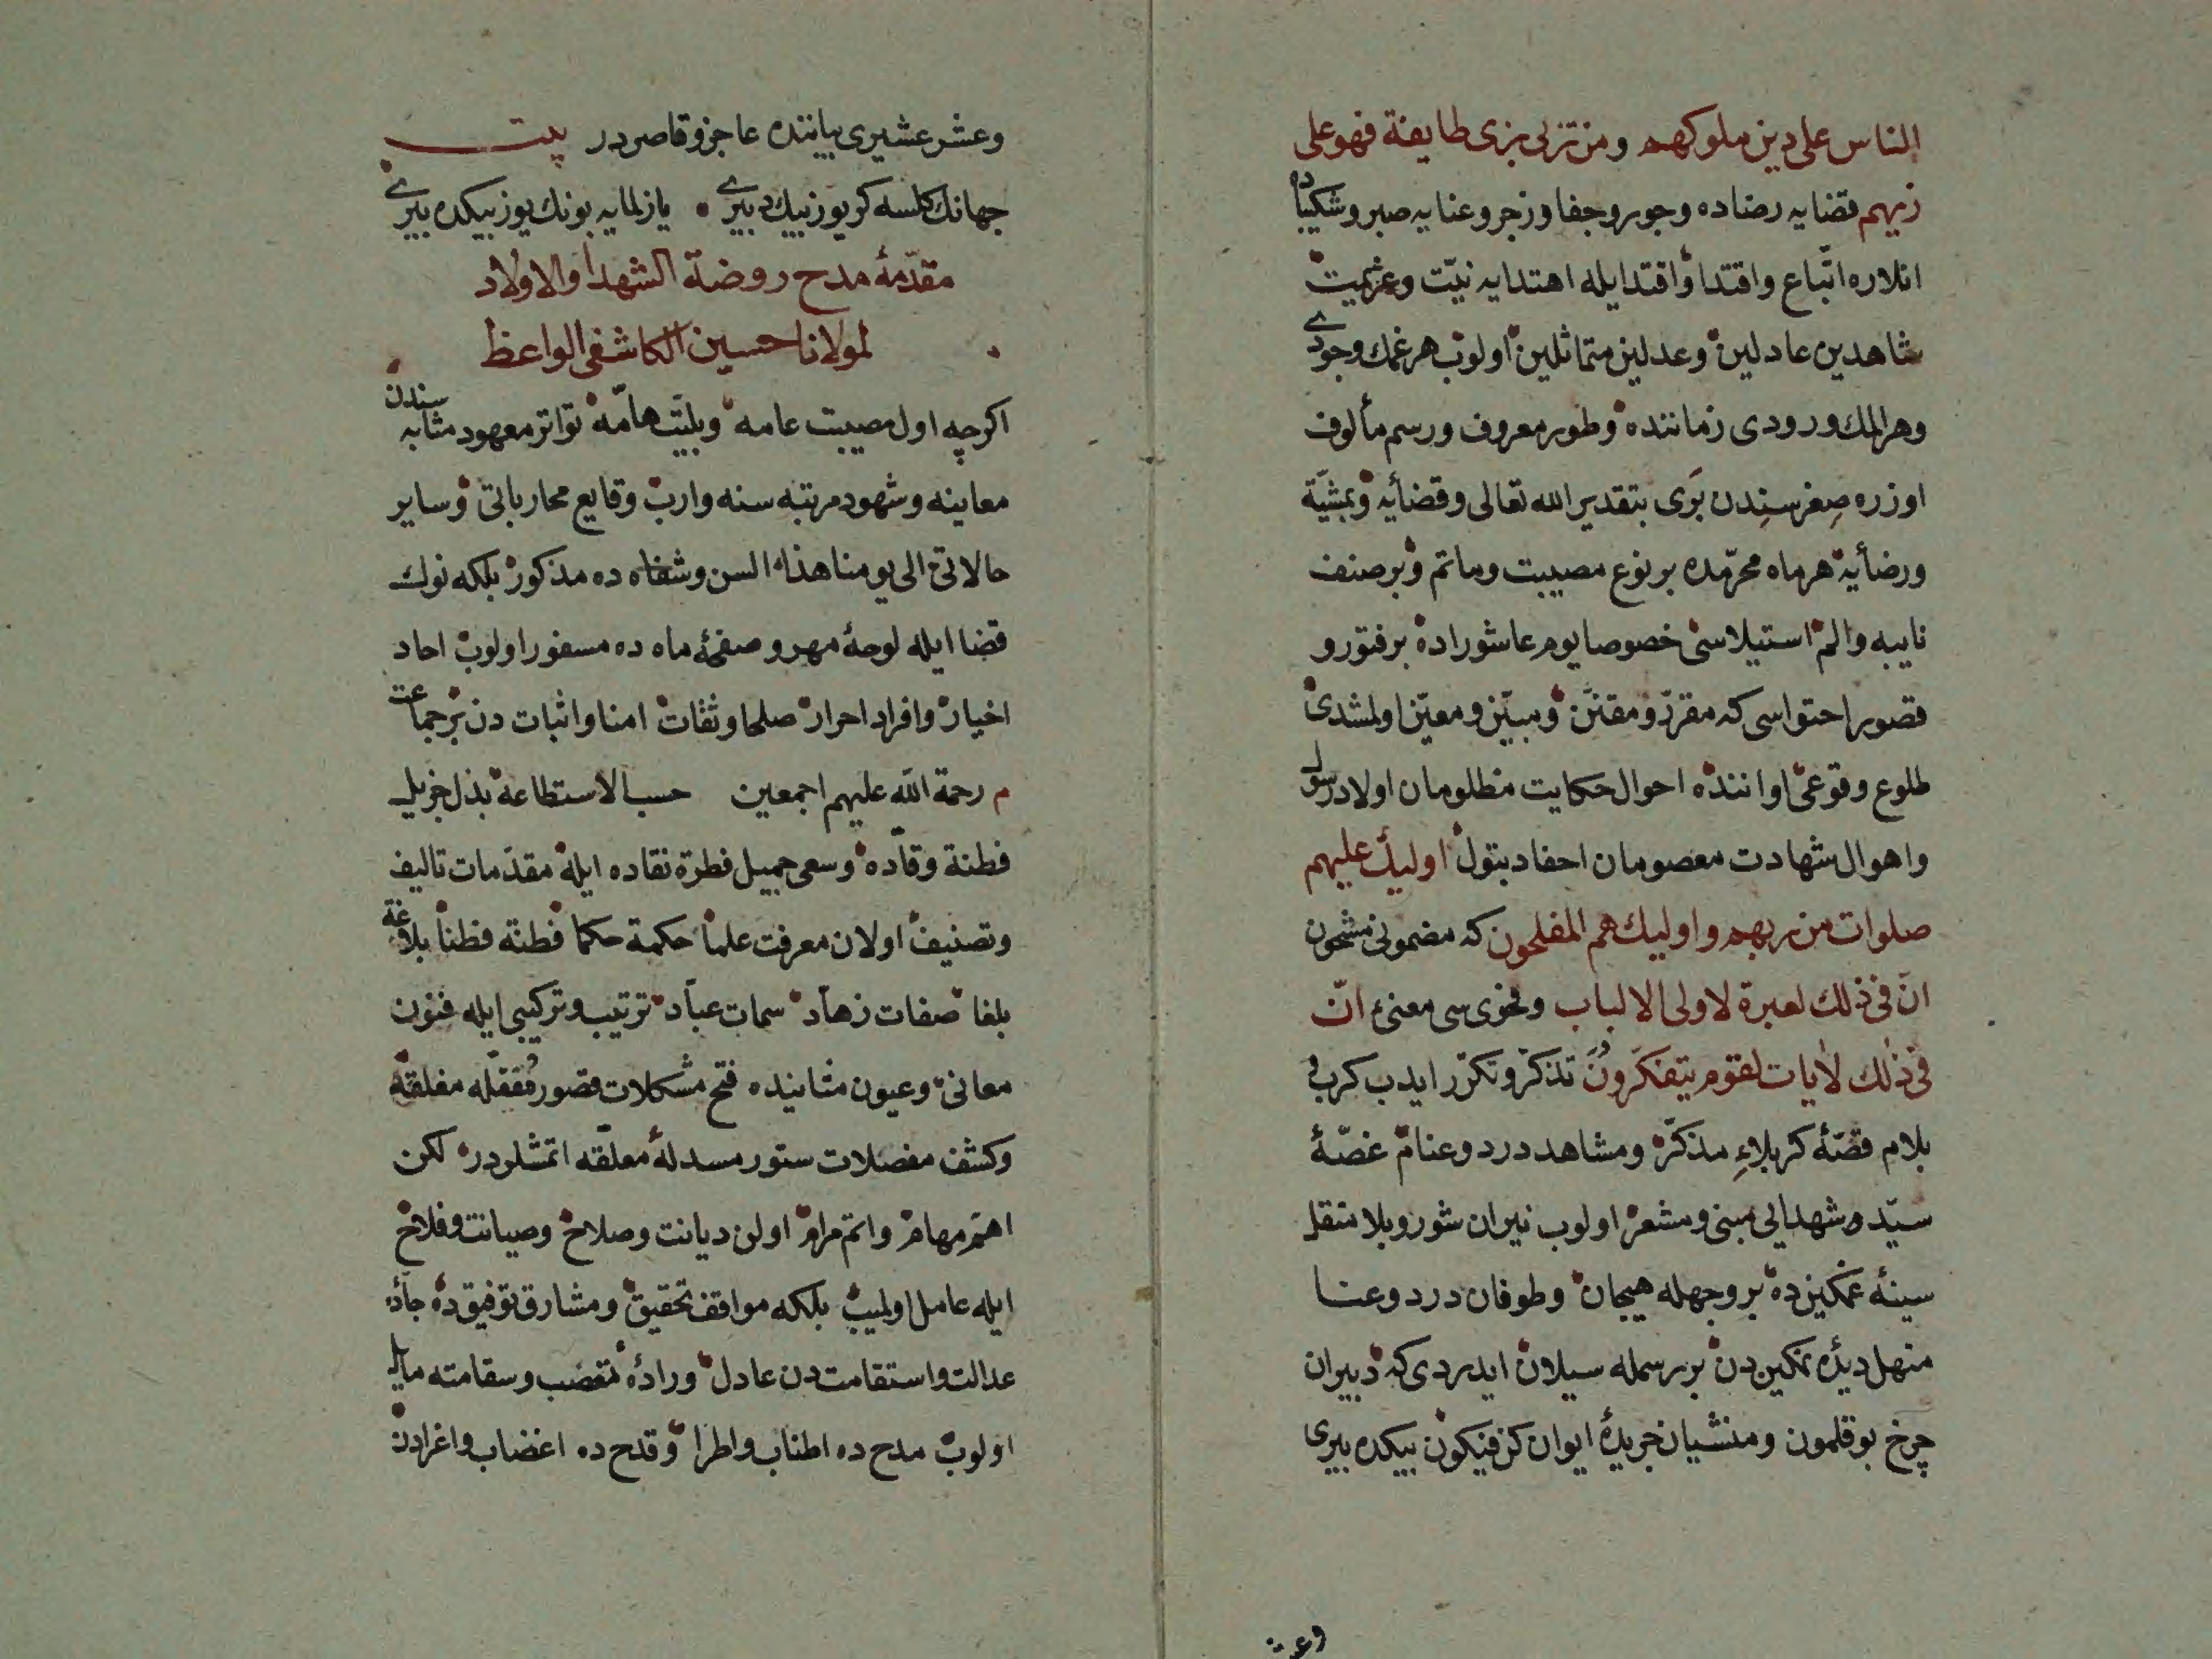 الناس على دين ملوكهم ومن تزلى بزى طايفة فهو على
زيهم قضايه رضاده وجور وجفا وزجر وعنايه صبر وشكيباده
انلاره اتباع واقتدا واقتدا ايله اهتدايه نيت وعزيمت
شاهدين عادلين وعدلين متماثلين اولوب هر غمك وجودى
وهر المك ورودى زماننده وطور معروف ورسم مألوف
اوزره صغرسندن بوى بتقدير الله تعالى وقضائه وبمشية
ورضائه هرماه محرمده بر نوع مصيبت وماتم وبر صنف
نايبه والم استيلاسى خصوصا يوم عاشوراده بر فتور و
قصور احتواسى كه مقرر ومقنن ومبين ومعين اولمشدى
طلوع وقوعى اواننده احوال حكايت مظلومان اولاد رسول
واهوال شهادت معصومان احفاد بتول اوليك عليهم
صلوات من ربهم واوليك هم المفلحون كه مضمونى مشحون
ان فى ذلك لعبرة لاولى الالباب وفحوى سى معنئ ان
فى ذلك لايات لقوم يتفكرون تذكر وتكرر ايدب كرب و
بلام قصۀ كربلاء مذكر ومشاهد درد وعنام غصۀ
سيد و شهدايى مبنى ومشعر اولوب نيران شور وبلا منقل
سينۀ غمكين ده بر وجهله هيجان وطوفان درد وعنا
منهل ديدۀ نمكين دن بر رسمله سيلان ايدردى كه دبيران
چرخ بوقلمون ومنشيان خريدۀ ايوان كن فيكون بيكده بيرى
وعشر
وعشر عشيرى بياننده عاجز وقاصردر بيت
جهانك كلسه كر يوز بيك دبيرى يازلمايه بونك يوز بيكده بيرى
مقدمۀ مدح روضة الشهدا والاولاد
لمولانا حسين الكاشفى الواعظ
اكرچه اول مصيبت عامه وبليت هامه تواتر معهود مثابه سندن
معاينه وشهود مرتبه سنه وارب وقايع محارباتى وساير
حالاتى الى يومنا هذا السن وشفاه ده مذكور بلكه نوك
قضا ايله لوحۀ مهر و صفحۀ ماه ده مسفور اولوب احاد
اخيار وافراد احرار صلحا وثقات امنا واثبات دن بر جماعت
م رحمة الله عليهم اجمعين حسب الاستطاعة بذل جزيل
فطنة وقاده وسعى جميل فطرة نقاده ايله مقدمات تاليف
وتصنيف اولان معرفت علما حكمة حكما فطنة فطنا بلاغة
بلغا صفات زهاد سمات عباد ترتيب وتركيبى ايله فنون
معانى وعيون مثانينده فتح مشكلات قصور مقفله مغلقه
وكشف مفصلات ستور مسدله معلقه اتمشلردر لكن
اهم مهام واتم مرام اولن ديانت وصلاح وصيانت وفلاح
ايله عامل اولميب بلكه مواقف تحقيق ومشارق توفيق ده جادۀ
عدالت واستقامت دن عادل ورادۀ تعضب وسقامته مايل
اولوب مدح ده اطناب واطرا وقدح ده اغضاب واغرادن